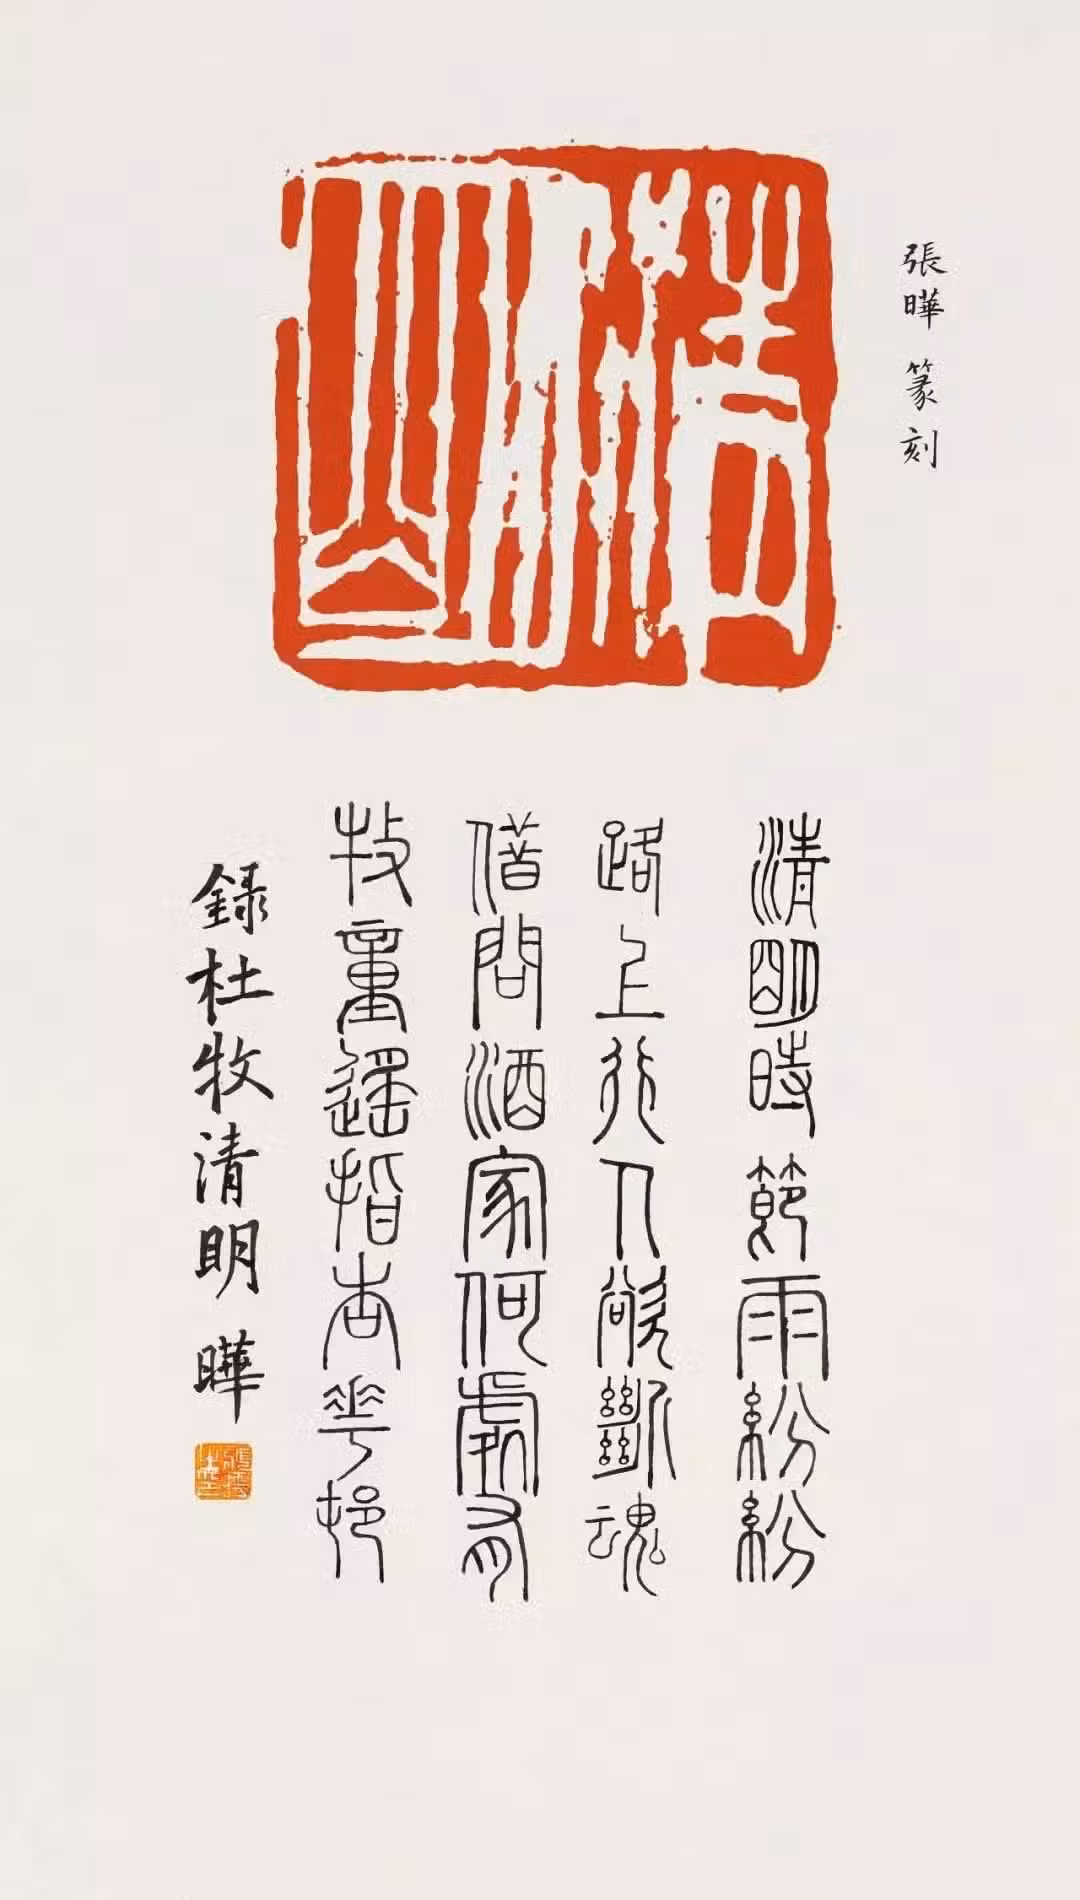 清明
張曄 篆刻
清明時節雨紛紛
路上行人欲斷魂
借問酒家何處有
牧童遥指杏華邨
錄杜牧清明 曄